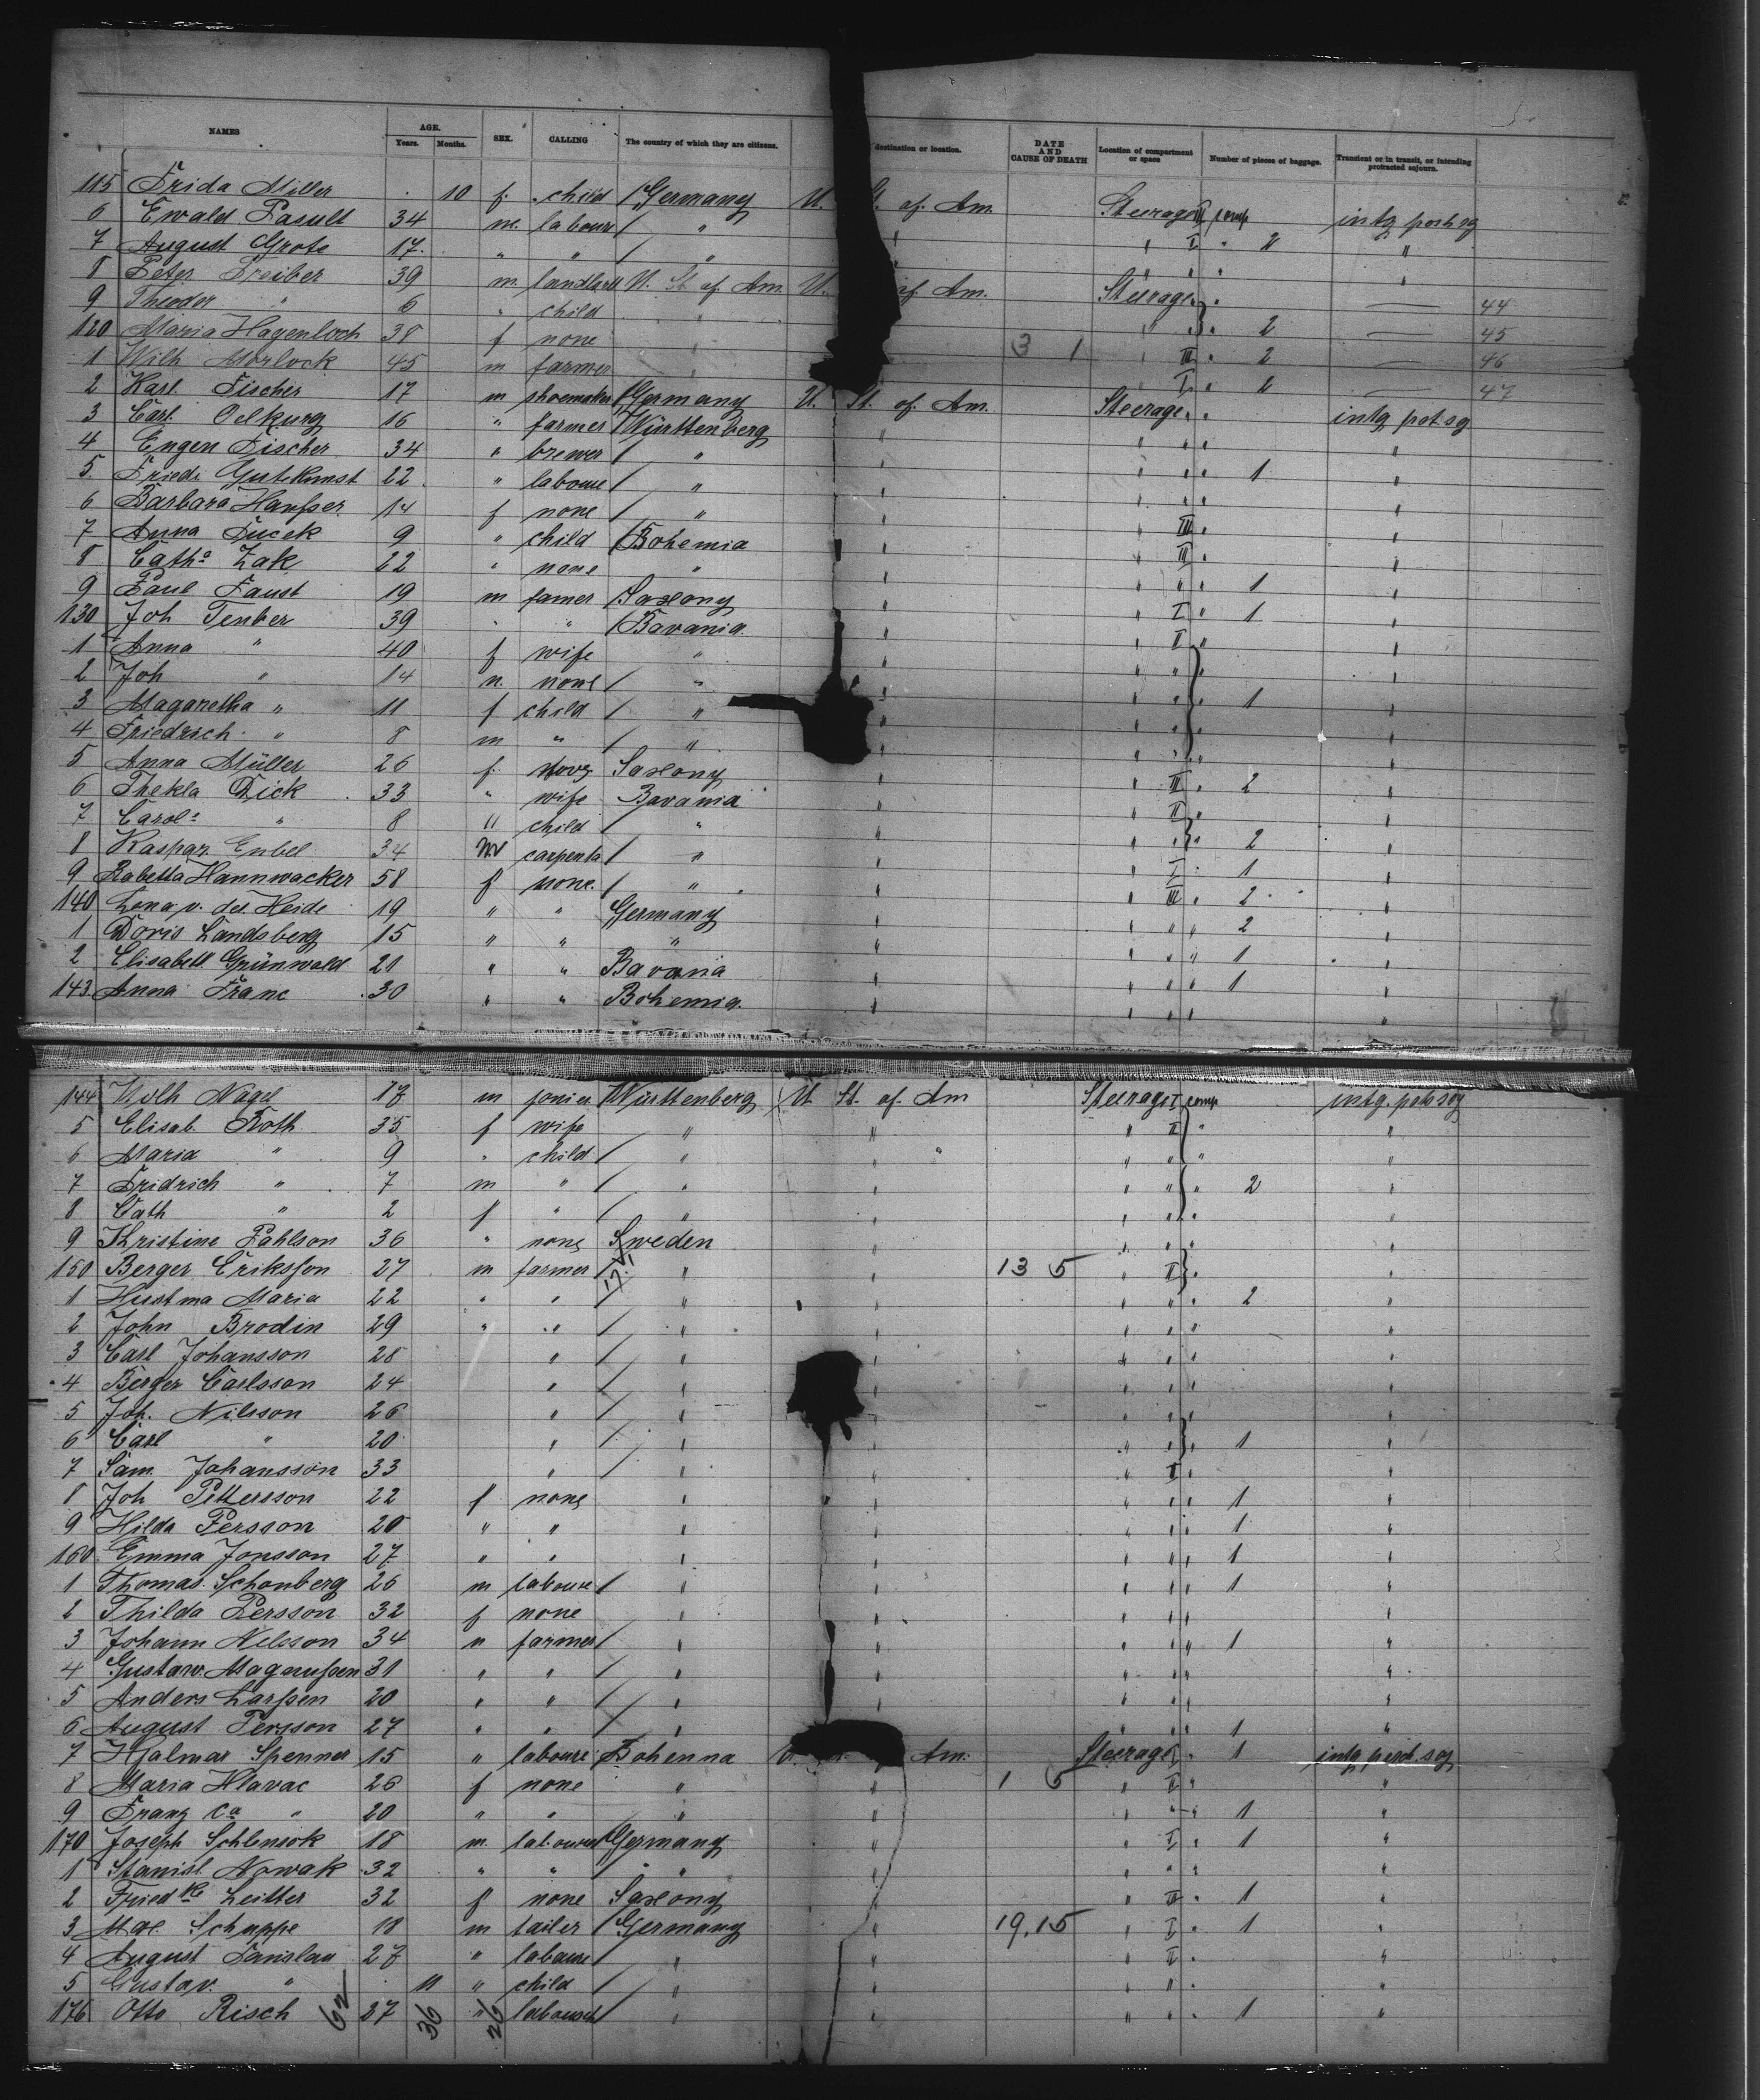 NAMES AGE. Years. Months. SEX. CALLING The country of which they are citizens. destination or location. DATE AND CAUSE OF DEATH Location of compartment or space Number of pieces of baggage. Transient or in transit, or intending protracted sojourn.
115 Frida Miller 10 f. child Germany U. St. of Am. Steerage II comp
6 Ewald 34 m. laboure " " I " 2 "
7 August Grote 17. " " " " " "
8 Peter Treiber 39 m. U. St. of Am. U. of Am. Steerage
9 Theodor " 6 " child " 44
120 Maria Hagenloch 38 f none " " " 2 45
1 Wilh Morlock 45 m farmer " 3 1 " III " 2 46
2 Karl Fischer 17 m shoemaker Germany U. St. of Am. I " 47
3 Carl Oelkurg 16 " farmer Württenberg " Steerage
4 Eugen Fischer 34 " brewer " " " " "
5. Friedr Gutekunst 22 " laboure " " " " " 1 "
6 Barbara Hausser 14 f none " " " " " "
7 Anna Tucek 9 " child Bohemia " " III " "
8 Catha Zak 22 " none " " " II " "
9 Paul Faust 19 m famer Saxony " " " " 1 "
130 Joh Teuber 39 " " Bavaria " " I " 1 "
1 Anna " 40 f wife " " " II " "
2 Joh " 14 m. none " " " " " "
3 Magaretha " 11 f child " " " " " 1 "
4 Friedrich " 8 m " " " " " " "
5 Anna Müller 26 f. none Saxony " " " " "
6 Thekla Dick 33 " wife Bavaria " " III " 2 "
7 Carola " 8 " child " " " II " "
8 Kaspar Enbel 34 m carpenter " " " " " 2 "
9 Babetta Hannwacker 58 f none. " " " I " 1 "
140 Lena v. der Heide 19 " " Germany " " III " 2 "
1 Doris Landsberg 15 " " " " " " " 2 "
2 Elisabett Grünwald 21 " " Bavaria " " " " 1 "
143 Anna Franc 30 " " Bohemia " " " " 1 "
144 Wilh Nagel 17 m Württenberg U St. of Am Steerage I comp
5 Elisab. Roth 35 f wife " " " II " "
6 Maria " 9 " child " " " " " "
7 Fridrich " 7 m " " " " " " 2 "
8 Cath " 2 f " " " " " " "
9 Kristine Pahlson 36 " none Sweden " " " " "
150 Berger Eriksson 27 m farmer " " 13 5 " I " "
1 Maria 22 " " " " " " " 2 "
2 John Brodin 29 " " " " " " " "
3 Carl Johansson 28 " " " " " " "
4 Berger Carlsson 24 " " " " " " "
5 Joh. Nilsson 26 " " " " " " "
6 Carl " 20 " " " " " " 1 "
7 Sam. Johansson 33 " " " " I " "
8 Joh Pettersson 22 f none " " " " " 1 "
9 Hilda Persson 20 " " " " " " " 1 "
160 Emma Jonsson 27 " " " " " " " 1 "
1 Thomas Schonberg 26 m laboure " " " " " 1 "
2 Thilda Persson 32 f none " " " " " "
3 Johann Nelsson 34 m farmer " " " " " 1 "
4 Gustaw. Magnussen 31 " " " " " " " "
5 Anders Larssen 20 " " " " " " " "
6 August Persson 27 " " " " " " " 1 "
7 Hjalmar Spenner 15 " laboure U. Am. Steerage " 1
8 Maria Hlavac 26 f none " " 1 5 " II " "
9 Franz ca " 20 " " " " " " " 1 "
170 Joseph 18 m. labourer Germany " " I " 1 "
1 Stanisl. Nowak 32 " " " " " " " "
2 Friedke Leitter 32 f none Saxony " " II " 1 "
3 Max Schuppe 18 m tailer Germany " 19. 15 " I " 1 "
4 August Fanslau 27 " laboure " " " II " "
5 Gustav. " 11 " child " " " " " "
176 Otto Risch 27 " " " " " " 1 "
62 36 26